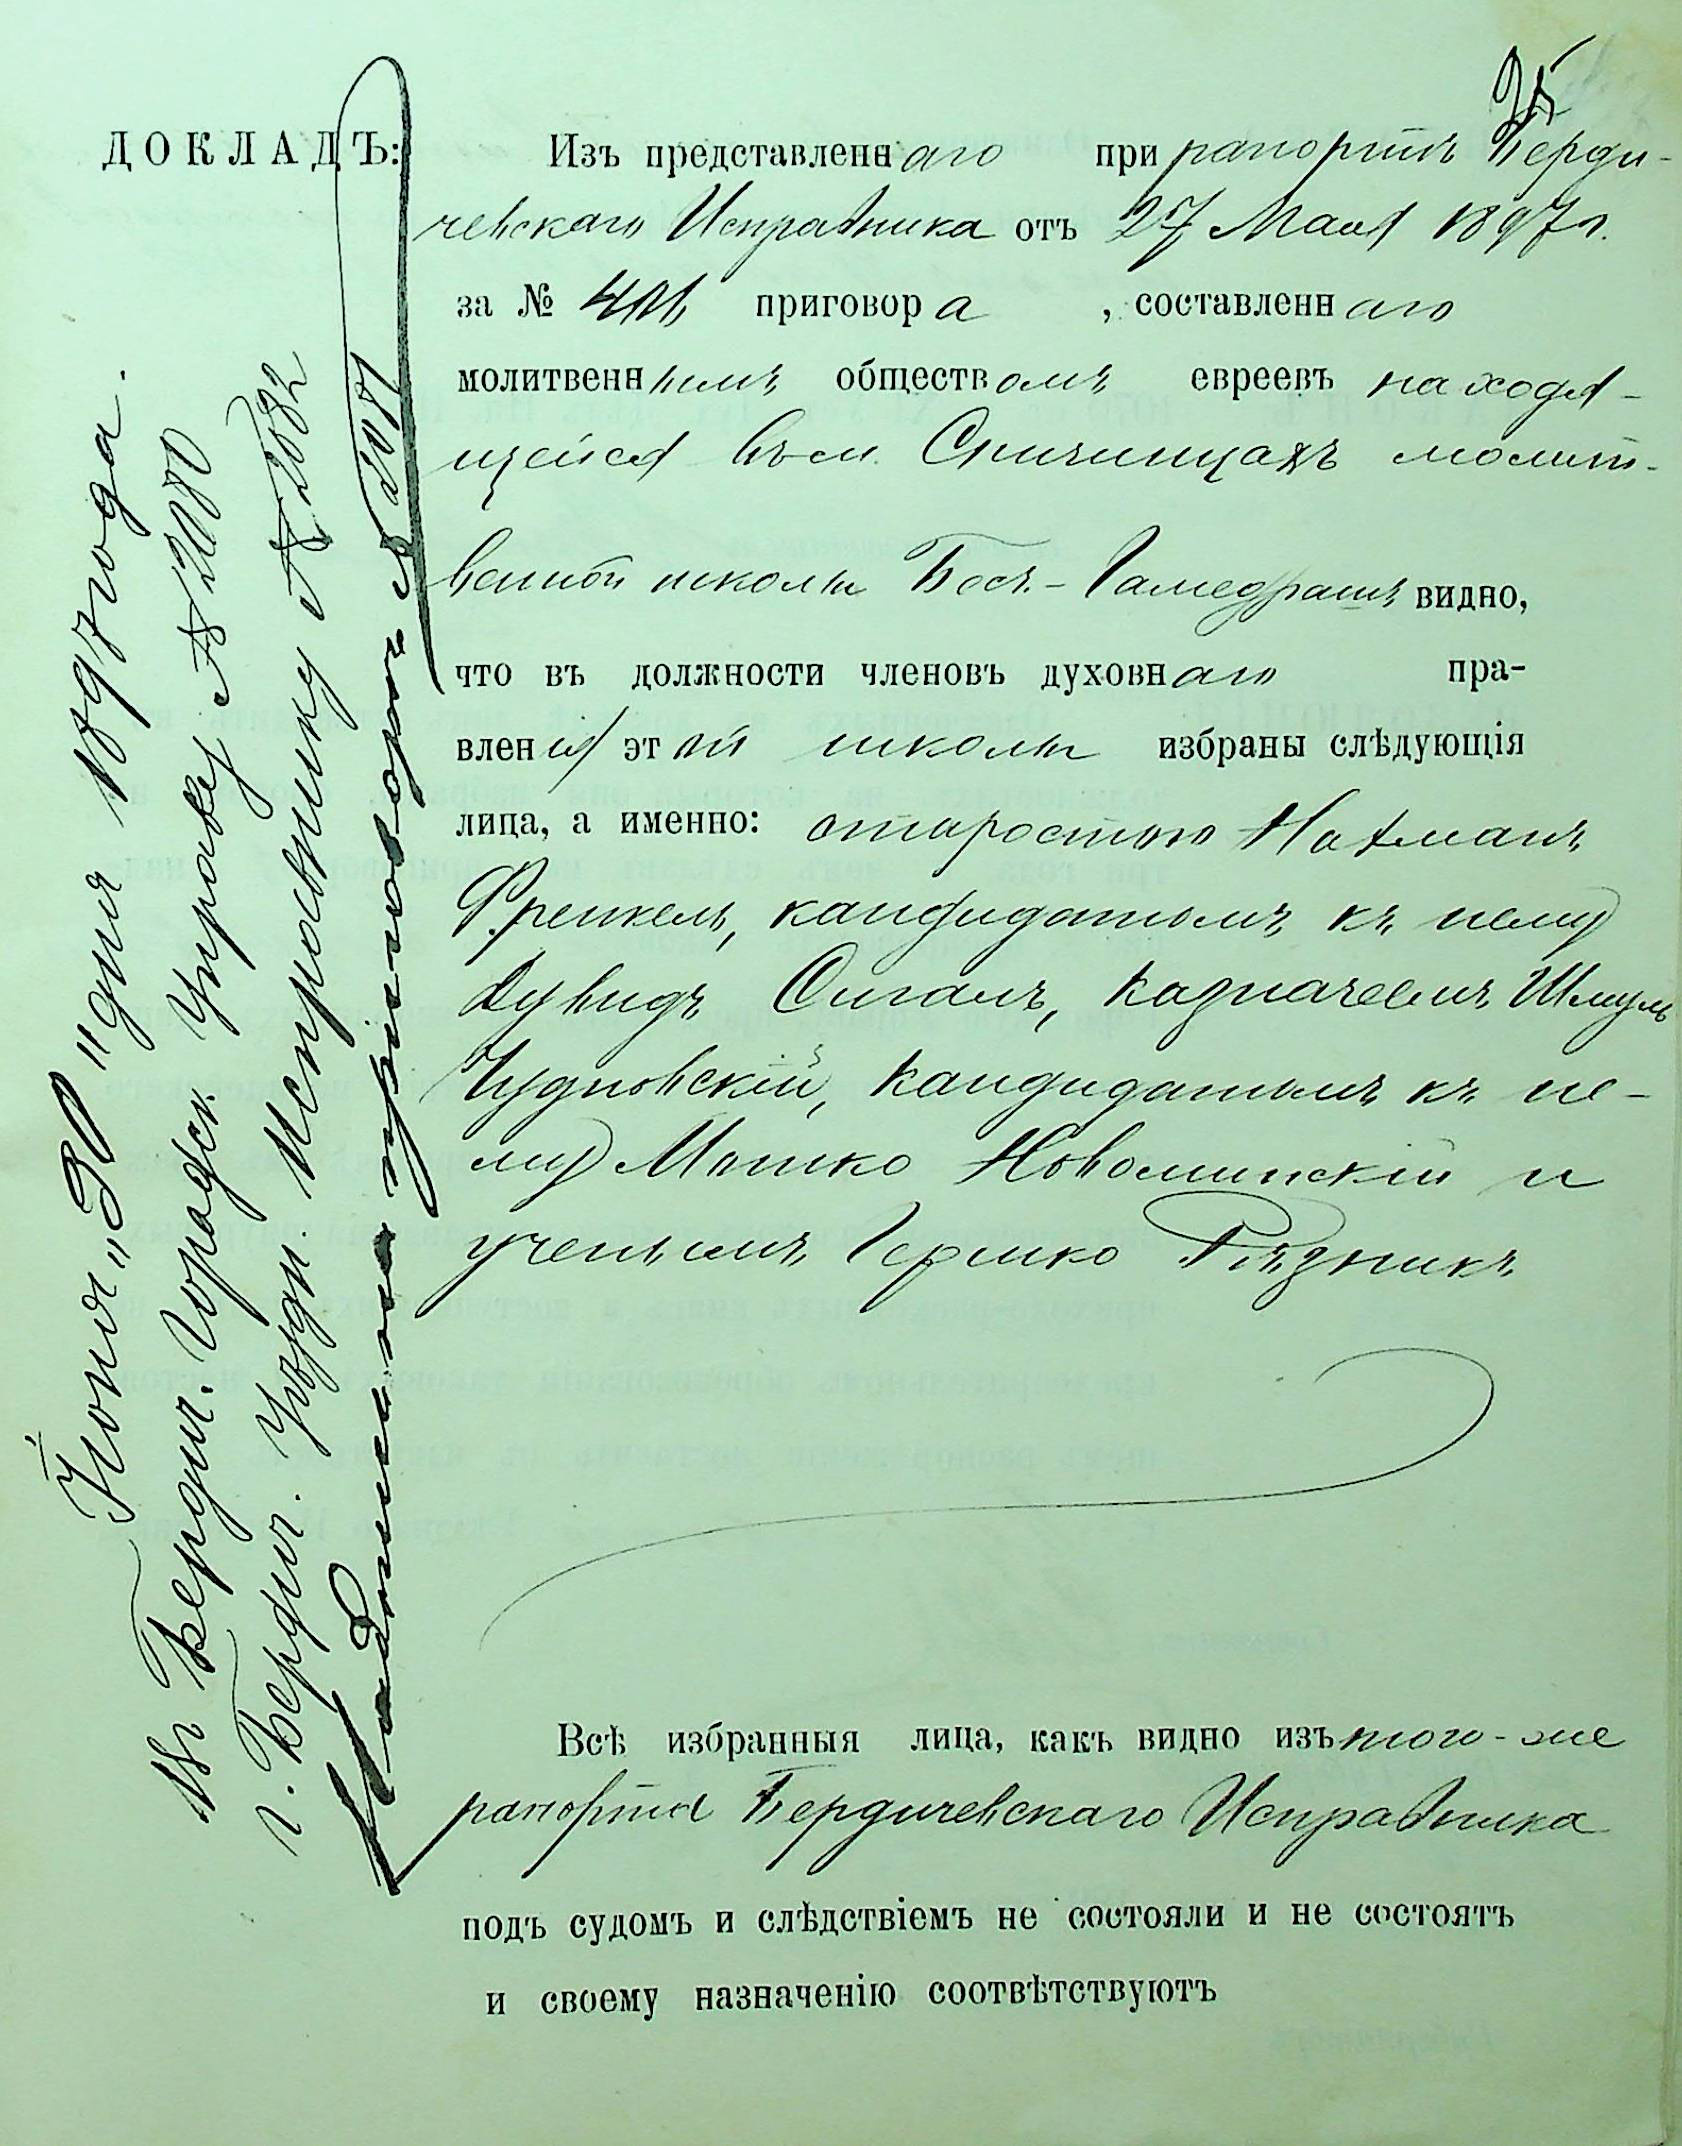 35
ДОКЛАДЪ: Изъ представленнаго при рапортѣ Берди-
чевскаго Исправника отъ 27 Мая 1897 г.
за № приговора, составленнаго
молитвеннымъ обществомъ евреевъ находя-
щейся въ м. Спичинцахъ молит-
венной школы Бесъ-Гамедрашъ видно,
что въ должности членовъ духовнаго пра-
вленія этой школы избраны слѣдующія
лица, а именно: старостою Нахманъ
Френкель, кандидатомъ къ нему
Дувидъ Сигалъ, казначеемъ Шмуль
Чудновскій, кандидатомъ къ не-
му Мошко Новоминскій и
ученымъ Гершко Рѣзникъ
Всѣ избранныя лица, какъ видно изъ того-же
рапорта Бердичевскаго Исправника
подъ судомъ и слѣдствіемъ не состояли и не состоятъ
и своему назначенію соотвѣтствуютъ
Іюня „30" дня 1897 года.
Въ Бердич. Городск. Управу № 2080
г. Бердич. Уѣздн. Исправнику № 2082
Надпись на приговорѣ № 2081